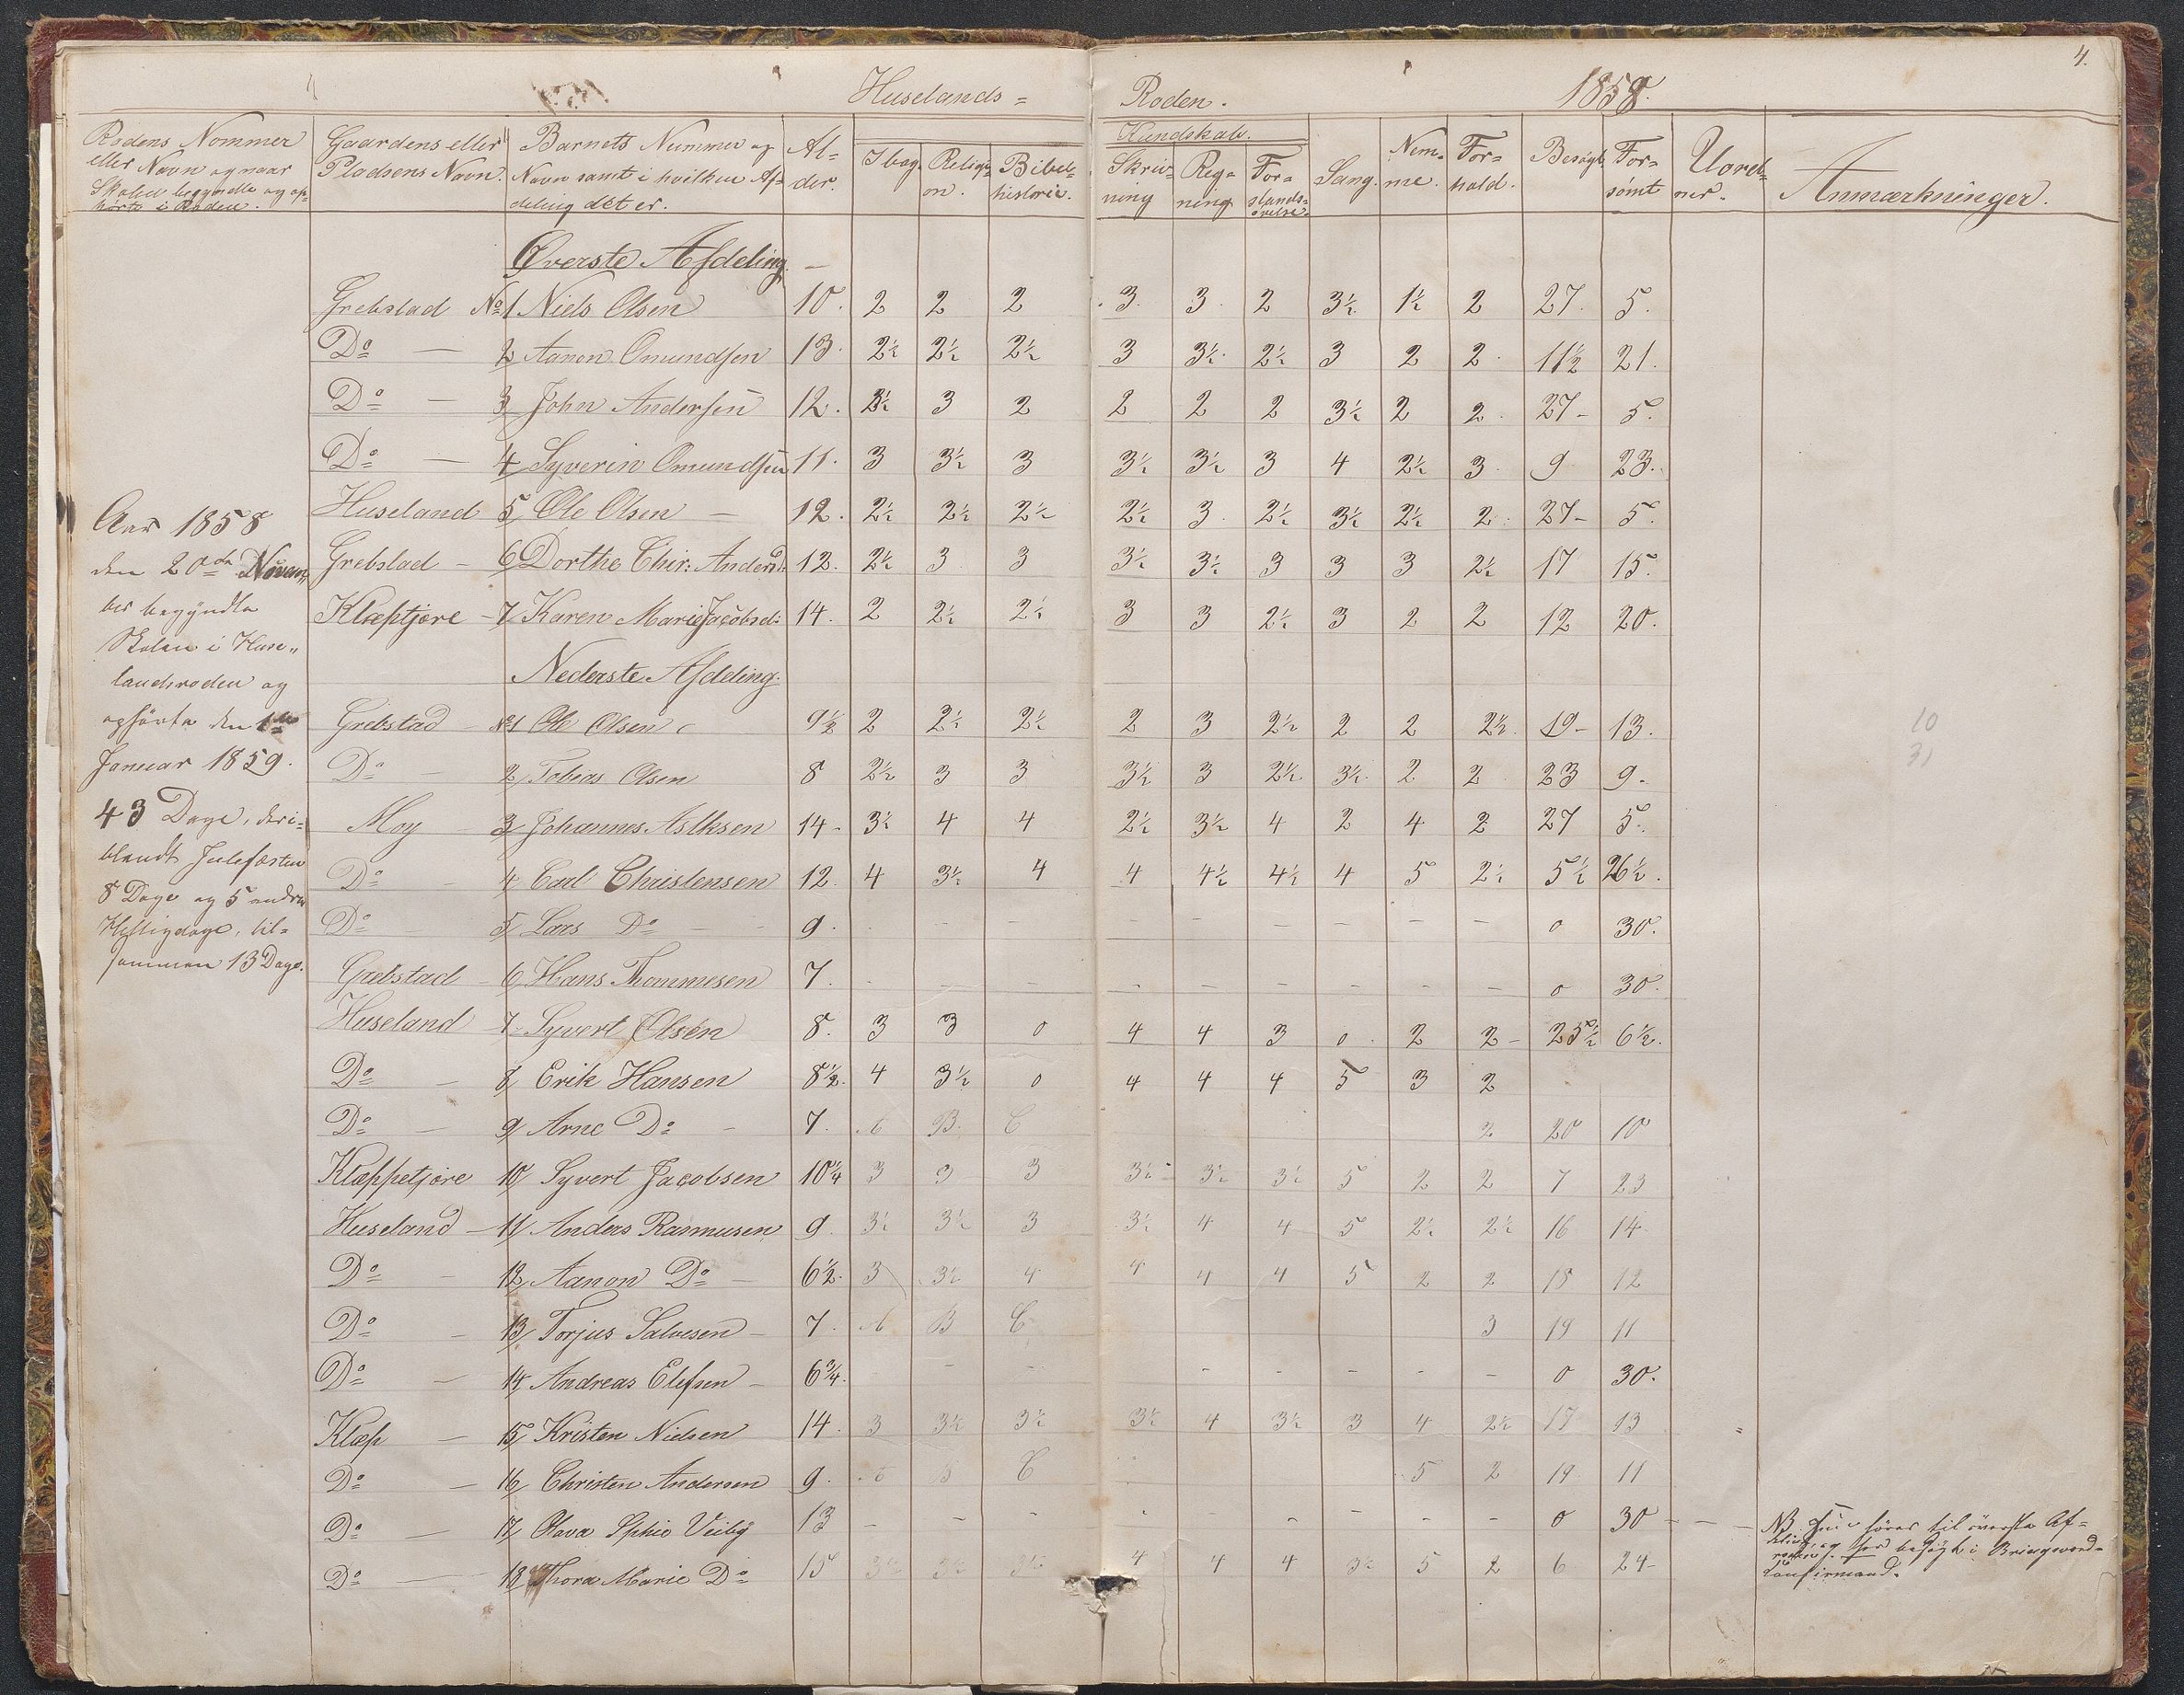 4.
Huselands= Roden. 1858.
Rodens Nommer eller Navn og naar Skolen begyndte og ophörte i Roden.
Gaardens eller Pladsens Navn.
Barnets Nummer og Navn samt i hvilken Afdeling det er.
Alder.
Kundskab.
I bog. Religion. Bibelhistorie. Skrivning Regning Forstandsøvelse. Sang. Nemme. Forhold. Besøgt. Forsömt Uordner. Anmærkninger.
Øverste Afdeling. —
Grebstad No 1 Niels Olsen 10. 2 2 2 3. 3. 2 3½ 1½ 2 27. 5.
Do — 2 Aanon Omundsen 13. 2½ 2½ 2½ 3 3½. 2½ 3 2 2. 11½ 21.
Do — 3 John Andersen 12. 2½ 3 2 2 2 2 3½ 2 2. 27- 5.
Do — 4 Syverin Omundsen 11. 3 3½ 3 3½ 3½ 3 4 2½ 3. 9 23.
Huseland 5 Ole Olsen — 12. 2½ 2½ 2½ 2½ 3. 2½ 3½ 2½ 2. 27- 5.
Grebstad - 6 Dorthe Chir: Andersd. 12. 2½ 3 3 3½ 3½ 3 3 3 2½ 17 15.
Kleptjøre - 7 Karen Marie Jacobsd: 14. 2 2½ 2½ 3 3 2½ 3 2 2 12 20.
Nederste Afdeling.
Grebstad - No 1 Ole Olsen 9½ 2 2½ 2½ 2 3 2½ 2 2 2½. 19- 13.
Do — 2 Tobias Olsen 8 2½ 3 3 3½ 3 2½ 3½. 2 2. 23 9-
Moy - 3 Johannes Aslksen 14- 3½ 4 4 2½ 3½ 4 2 4 2 27 5.
Do - 4 Carl Christensen 12. 4 3½ 4 4 4½ 4½ 4 5 2½ 5½ 26½.
Do 5 Lars Do — 9. - - - - - - - - 0 30.
Grebstad - 6 Hans Thommesen 7. - - - - - - - - - 0 30.
Huseland - 7 Syvert Olsen 8. 3 3 0 4 4 3 0. 2 2- 25½ 6½.
Do - 8 Erik Hansen 8½. 4 3½ 0 4 4 4 5 3 2
Do - 9 Arne Do - 7. A B. C 2 20 10
Kleppetjøre 10 Syvert Jacobsen 10¼ 3 3 3 3½ 3½ 3½ 5 2 2 7 23
Huseland - 11 Anders Rasmusen 9. 3½ 3½ 3 3½ 4 4 5 2½ 2½ 16 14
Do - 12 Aanon Do - 6½. 3 3½ 4 4 4 4 5 2 2 18 12
Do - 13 Torjus Salvesen - 7. A B C 3 19 11
Do — 14 Andreas Elefsen - 6¾. - - - - - - - 0 30.
Klep — 15 Kristen Nielsen 14. 3 3½ 3½ 3½ 4 3½ 3 4 2½ 17 13
Do — 16 Christen Andersen 9. A B C 5 2 19 11
Do — 17 Olava Sphie Veiby 13 - - - - - - - - 0 30 - - -
Do — 18 Thora Marie Do 15 3½ 3½ 3½ 4 4 4 3½ 5 2 6 24-
Aar 1858
den 20de Novem
ber begyndte
Skolen i Huse„
landsroden og
ophörte den 1ste
Januar 1859.
43 Dage, deri=
blandt Julefæsten
8 Dage og 5 andre
Helligdage, til=
sammen 13 Dage.
10
31
NB hörer til överste Af=
og har besögt i
konfirmand.